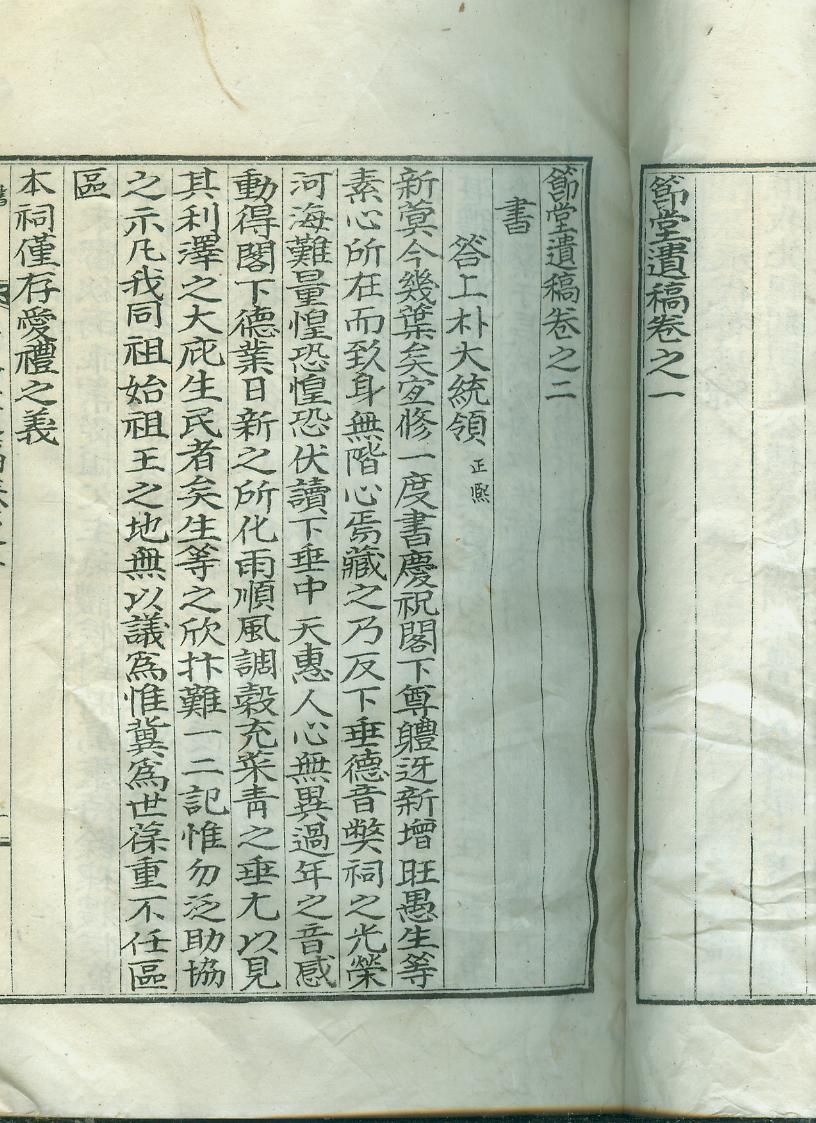 節堂遺稿卷之一
節堂遺稿卷之二
書
答上朴大統領 正熙
新蓂今幾葉矣寔修一度書慶祝閣下尊軆迓新增旺愚生等
素心所在而致身無階心焉藏之乃反下垂德音弊祠之光榮
河海難量惶恐惶恐伏讀下垂中天惠人心無異過年之音感
動得閣下德業日新之所化雨順風調穀充菜靑之垂尤以見
其利澤之大庇生民者矣生等之欣抃難一二記惟勿泛助協
之示凡我同祖始祖王之地無以議爲惟冀爲世葆重不任區
區
本祠僅存愛禮之義